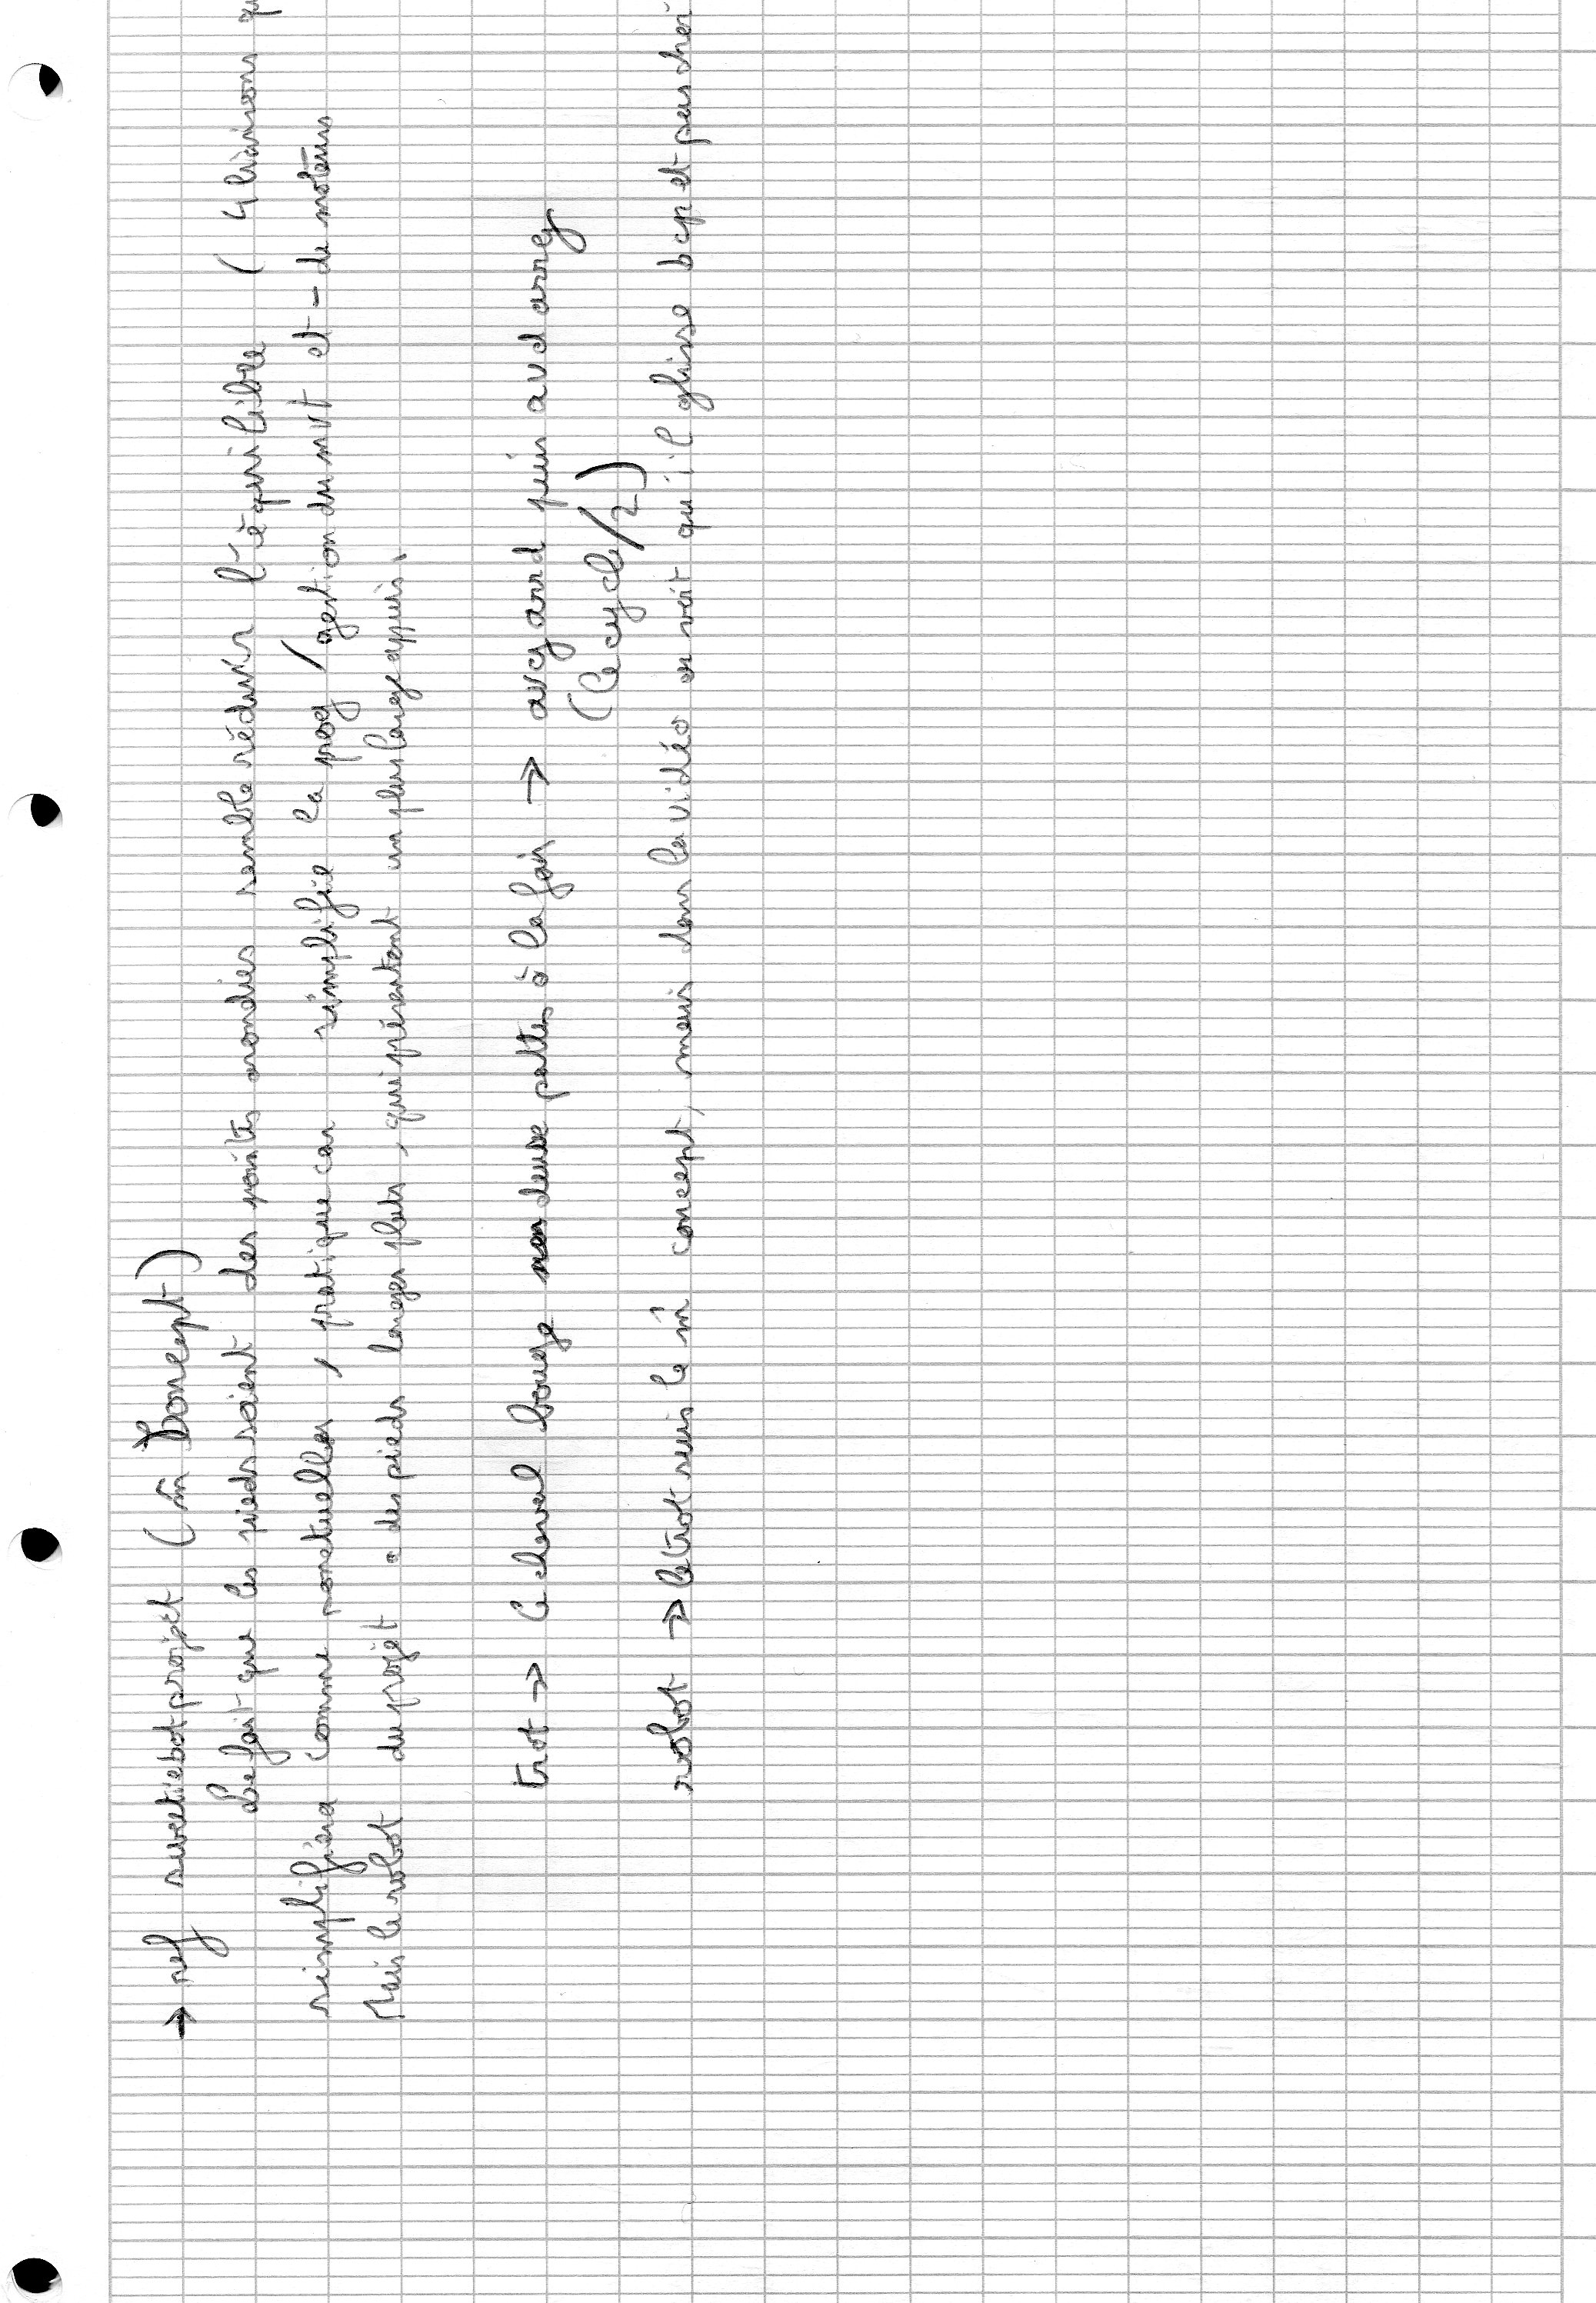 → ref sweetiebotproject (m̂ Concept)
Le fait que les pieds soient des pointes arondies semble réduir l'équilibre ( 4 liaisons qu
simplifiera comme ponctuelles, pratique car simplifie la prog / gestion du mvt et - de moteurs
Mais le robot du projet a des pieds larges plats, qui présentent un plus large appuis.
trot → le cheval bouge deux pattes à la fois → avg arrd puis avd arrg
(le cycle/2)
robot → le trot suis le m̂ concept, mais dans la vidéo on voit qu'il glisse bcp et